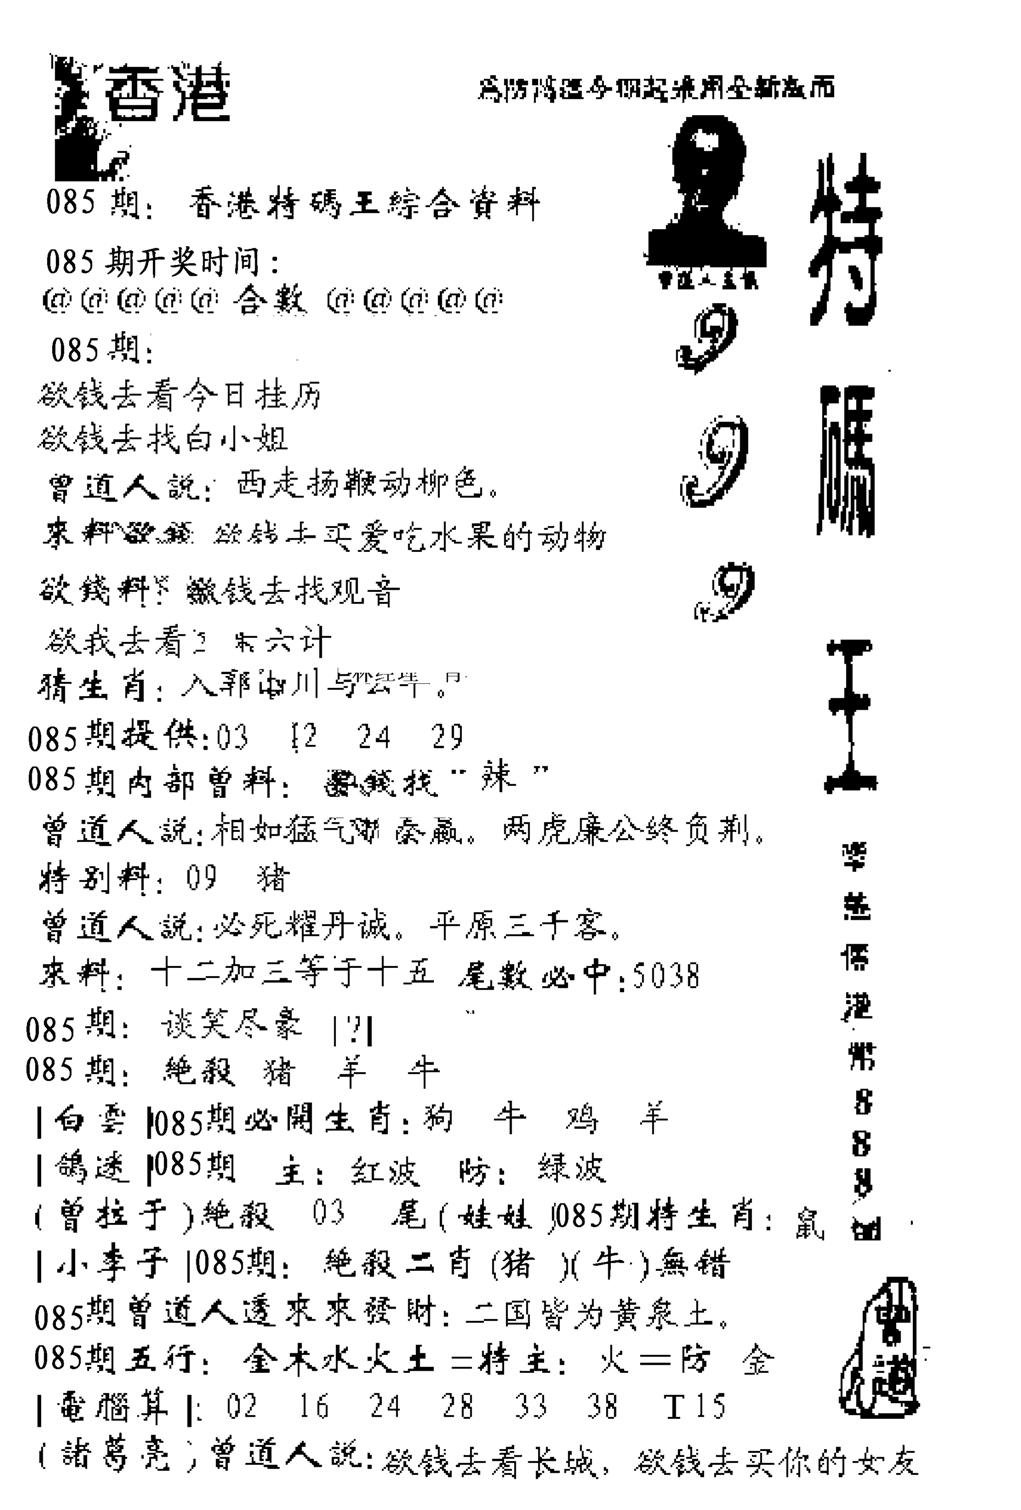 香港
085期：香港特碼王綜合資料
085期开奖时间：
@@@@@合數@@@@@
085期：
欲钱去看今日挂历
欲钱去找白小姐
曾道人説：西走扬鞭动柳色。
來料 欲钱去买爱吃水果的动物
欲錢料：欲钱去找观音
欲我去看 六计
猜生肖：入郭 川与
085期提供:03 12 24 29
085期内部曾料：錢找“辣”
曾道人説:相如猛气 秦赢。两虎廉公终负荆。
特别料：09 猪
曾道人説:必死耀丹诚。平原三千客。
來料：十二加三等于十五 尾數必中:5038
085期：谈笑尽豪 |?|
085期：絶殺 猪 羊 牛
|白雲|085期必開生肖:狗 牛 鸡 羊
|鴿迷|085期 主：红波 防：绿波
(曾拉于)絶殺 03 尾(娃娃)085期特生肖：鼠
|小李子|085期：絶殺二肖(猪)(牛)無错
085期曾道人透來來發財：二国皆为黄泉土。
085期五行：金木水火土=特主：火=防 金
|電腦算|: 02 16 24 28 33 38 T15
(諸葛亮)曾道人説:欲钱去看长城，欲钱去买你的女友
曾道人
9
9
9
特
碼
王
港
幣
8
8
8
曾道